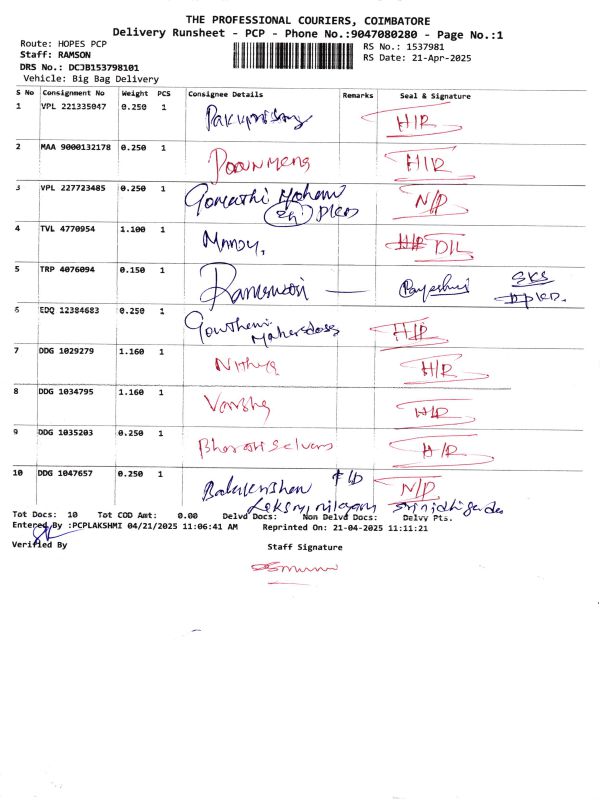 THE PROFESSIONAL COURIERS, COIMBATORE
Delivery Runsheet - PCP - Phone No.:9047080280 - Page No.:1
Route: HOPES PCP
RS No.: 1537981
Staff: RAMSON
RS Date: 21-Apr-2025
DRS No.: DCJB153798101
Vehicle: Big Bag Delivery
S No Consignment No Weight PCS Consignee Details Remarks Seal & Signature
1 VPL 221335047 0.250 1 H/R
2 MAA 9000132178 0.250 1 H/R
3 VPL 227723485 0.250 1 Gomathi N/P
4 TVL 4770954 1.100 1 D/L
5 TRP 4076094 0.150 1 SKS
6 EDQ 12384683 0.250 1 H/R
7 DDG 1029279 1.160 1 Nithya H/R
8 DDG 1034795 1.160 1 Varsha H/R
9 DDG 1035203 0.250 1 H/R
10 DDG 1047657 0.250 1 N/P
Tot Docs: 10 Tot COD Amt: 0.00 Delvd Docs: Non Delvd Docs: Delvy Pts.
Entered By :PCPLAKSHMI 04/21/2025 11:06:41 AM Reprinted On: 21-04-2025 11:11:21
Verified By
Staff Signature